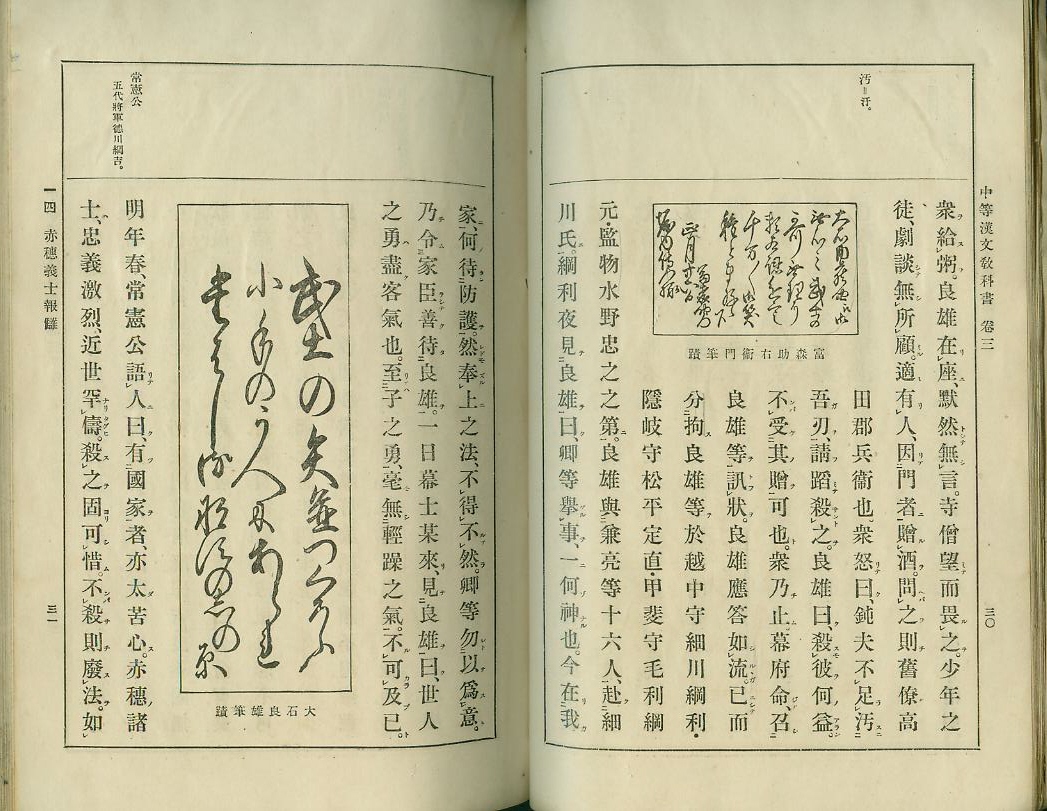 中等漢文敎科書 卷三
三〇
汚＝汙。
衆給粥。良雄在座、默然無言。寺僧望而畏之。少年之
徒、劇談無所顧。適有人、因門者贈酒。問之則舊僚高
田郡兵衞也。衆怒曰、鈍夫不足汚
吾刃、請蹈殺之。良雄曰、殺彼何益。
不受其贈可也。衆乃止。幕府命、召
良雄等訊狀。良雄應答如流。已而
分拘良雄等於越中守細川綱利・
隱岐守松平定直・甲斐守毛利綱
富森助右衞門筆蹟
元・監物水野忠之之第。良雄與兼亮等十六人、赴細
川氏。綱利夜見良雄曰、卿等擧事、一何神也。今在我
家、何待防護。然奉上之法、不得不然。卿等勿以爲意。
乃令家臣善待良雄。一日幕士某來、見良雄曰、世人
之勇盡客氣也。至子之勇、毫無輕躁之氣。不可及已。
大石良雄筆蹟
明年春、常憲公語人曰、有國家者、亦太苦心。赤穗諸
士、忠義激烈、近世罕儔。殺之固可惜。不殺則廢法。如
常憲公
五代將軍德川綱吉。
一四 赤穗義士報讎
三一